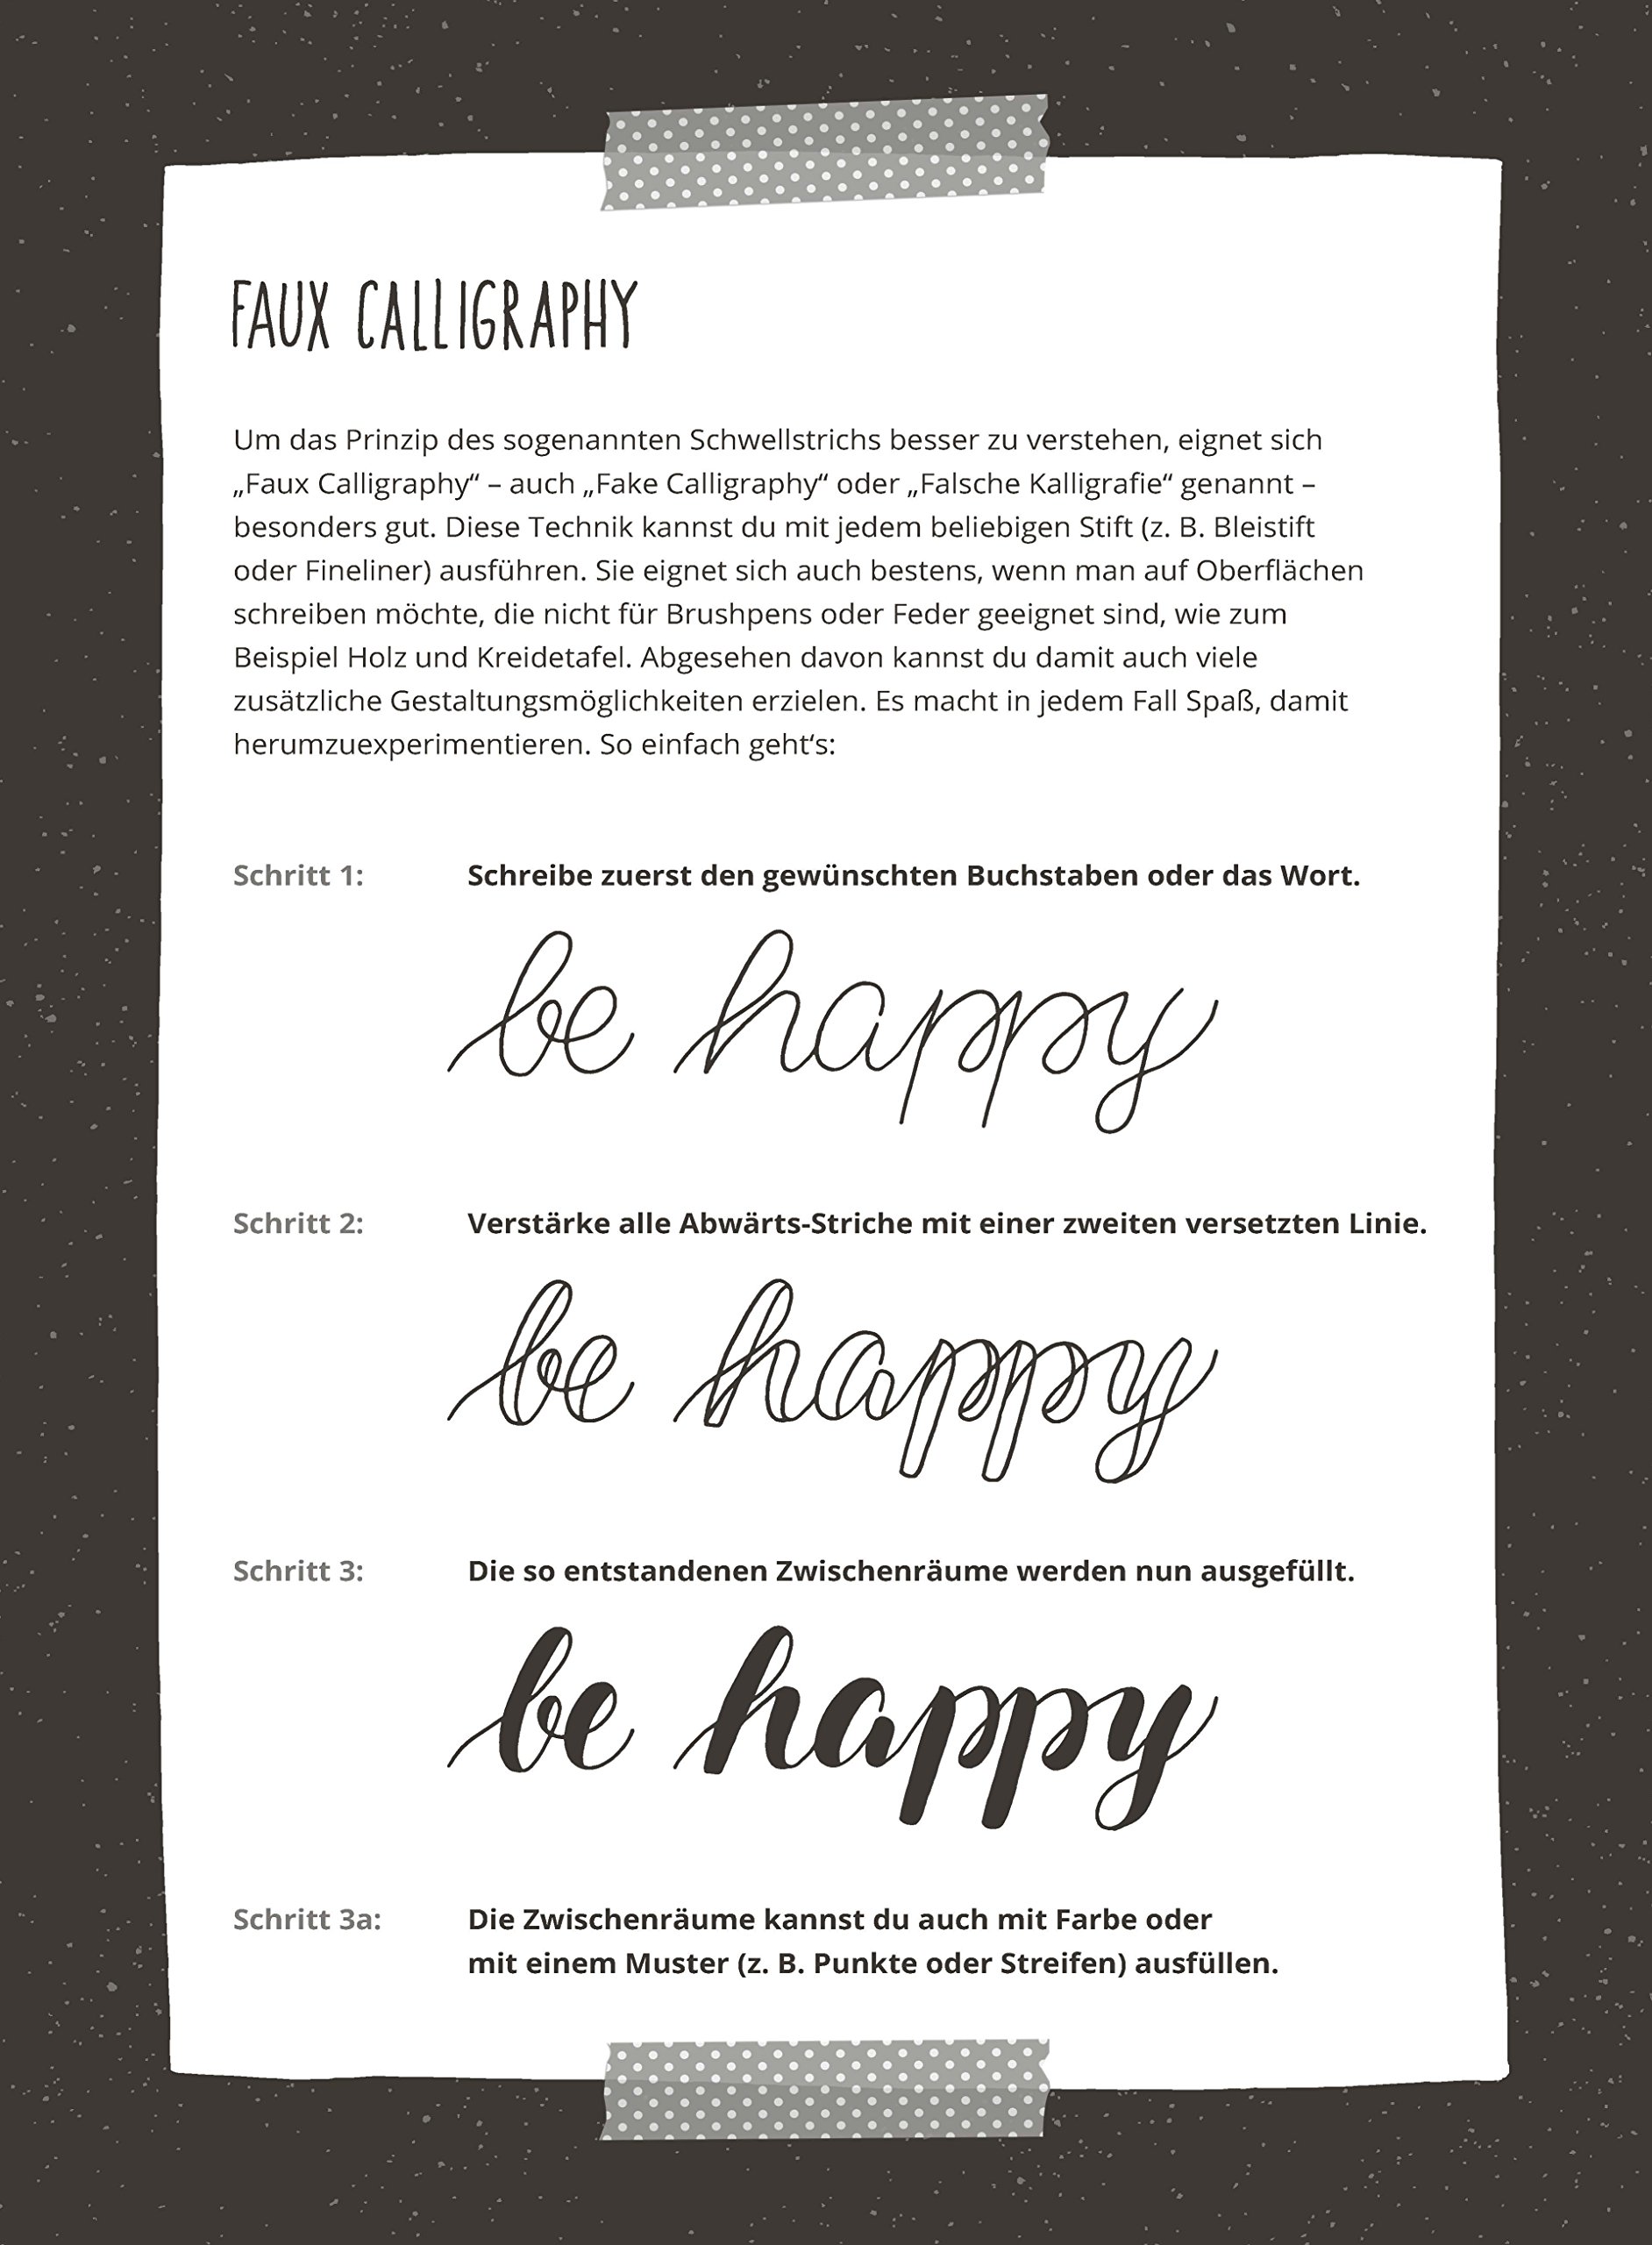 FAUX CALLIGRAPHY
Um das Prinzip des sogenannten Schwellstrichs besser zu verstehen, eignet sich
„Faux Calligraphy“ – auch „Fake Calligraphy“ oder „Falsche Kalligrafie“ genannt –
besonders gut. Diese Technik kannst du mit jedem beliebigen Stift (z. B. Bleistift
oder Fineliner) ausführen. Sie eignet sich auch bestens, wenn man auf Oberflächen
schreiben möchte, die nicht für Brushpens oder Feder geeignet sind, wie zum
Beispiel Holz und Kreidetafel. Abgesehen davon kannst du damit auch viele
zusätzliche Gestaltungsmöglichkeiten erzielen. Es macht in jedem Fall Spaß, damit
herumzuexperimentieren. So einfach geht‘s:
Schritt 1: Schreibe zuerst den gewünschten Buchstaben oder das Wort.
be happy
Schritt 2: Verstärke alle Abwärts-Striche mit einer zweiten versetzten Linie.
be happy
Schritt 3: Die so entstandenen Zwischenräume werden nun ausgefüllt.
be happy
Schritt 3a: Die Zwischenräume kannst du auch mit Farbe oder
mit einem Muster (z. B. Punkte oder Streifen) ausfüllen.